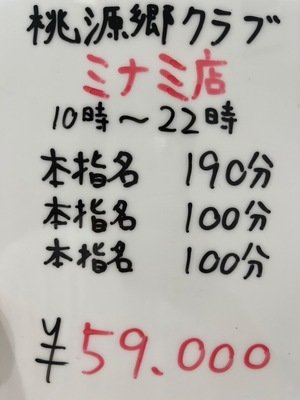 桃源郷クラブ
ミナミ店
10時～22時
本指名 190分
本指名 100分
本指名 100分
¥59.000